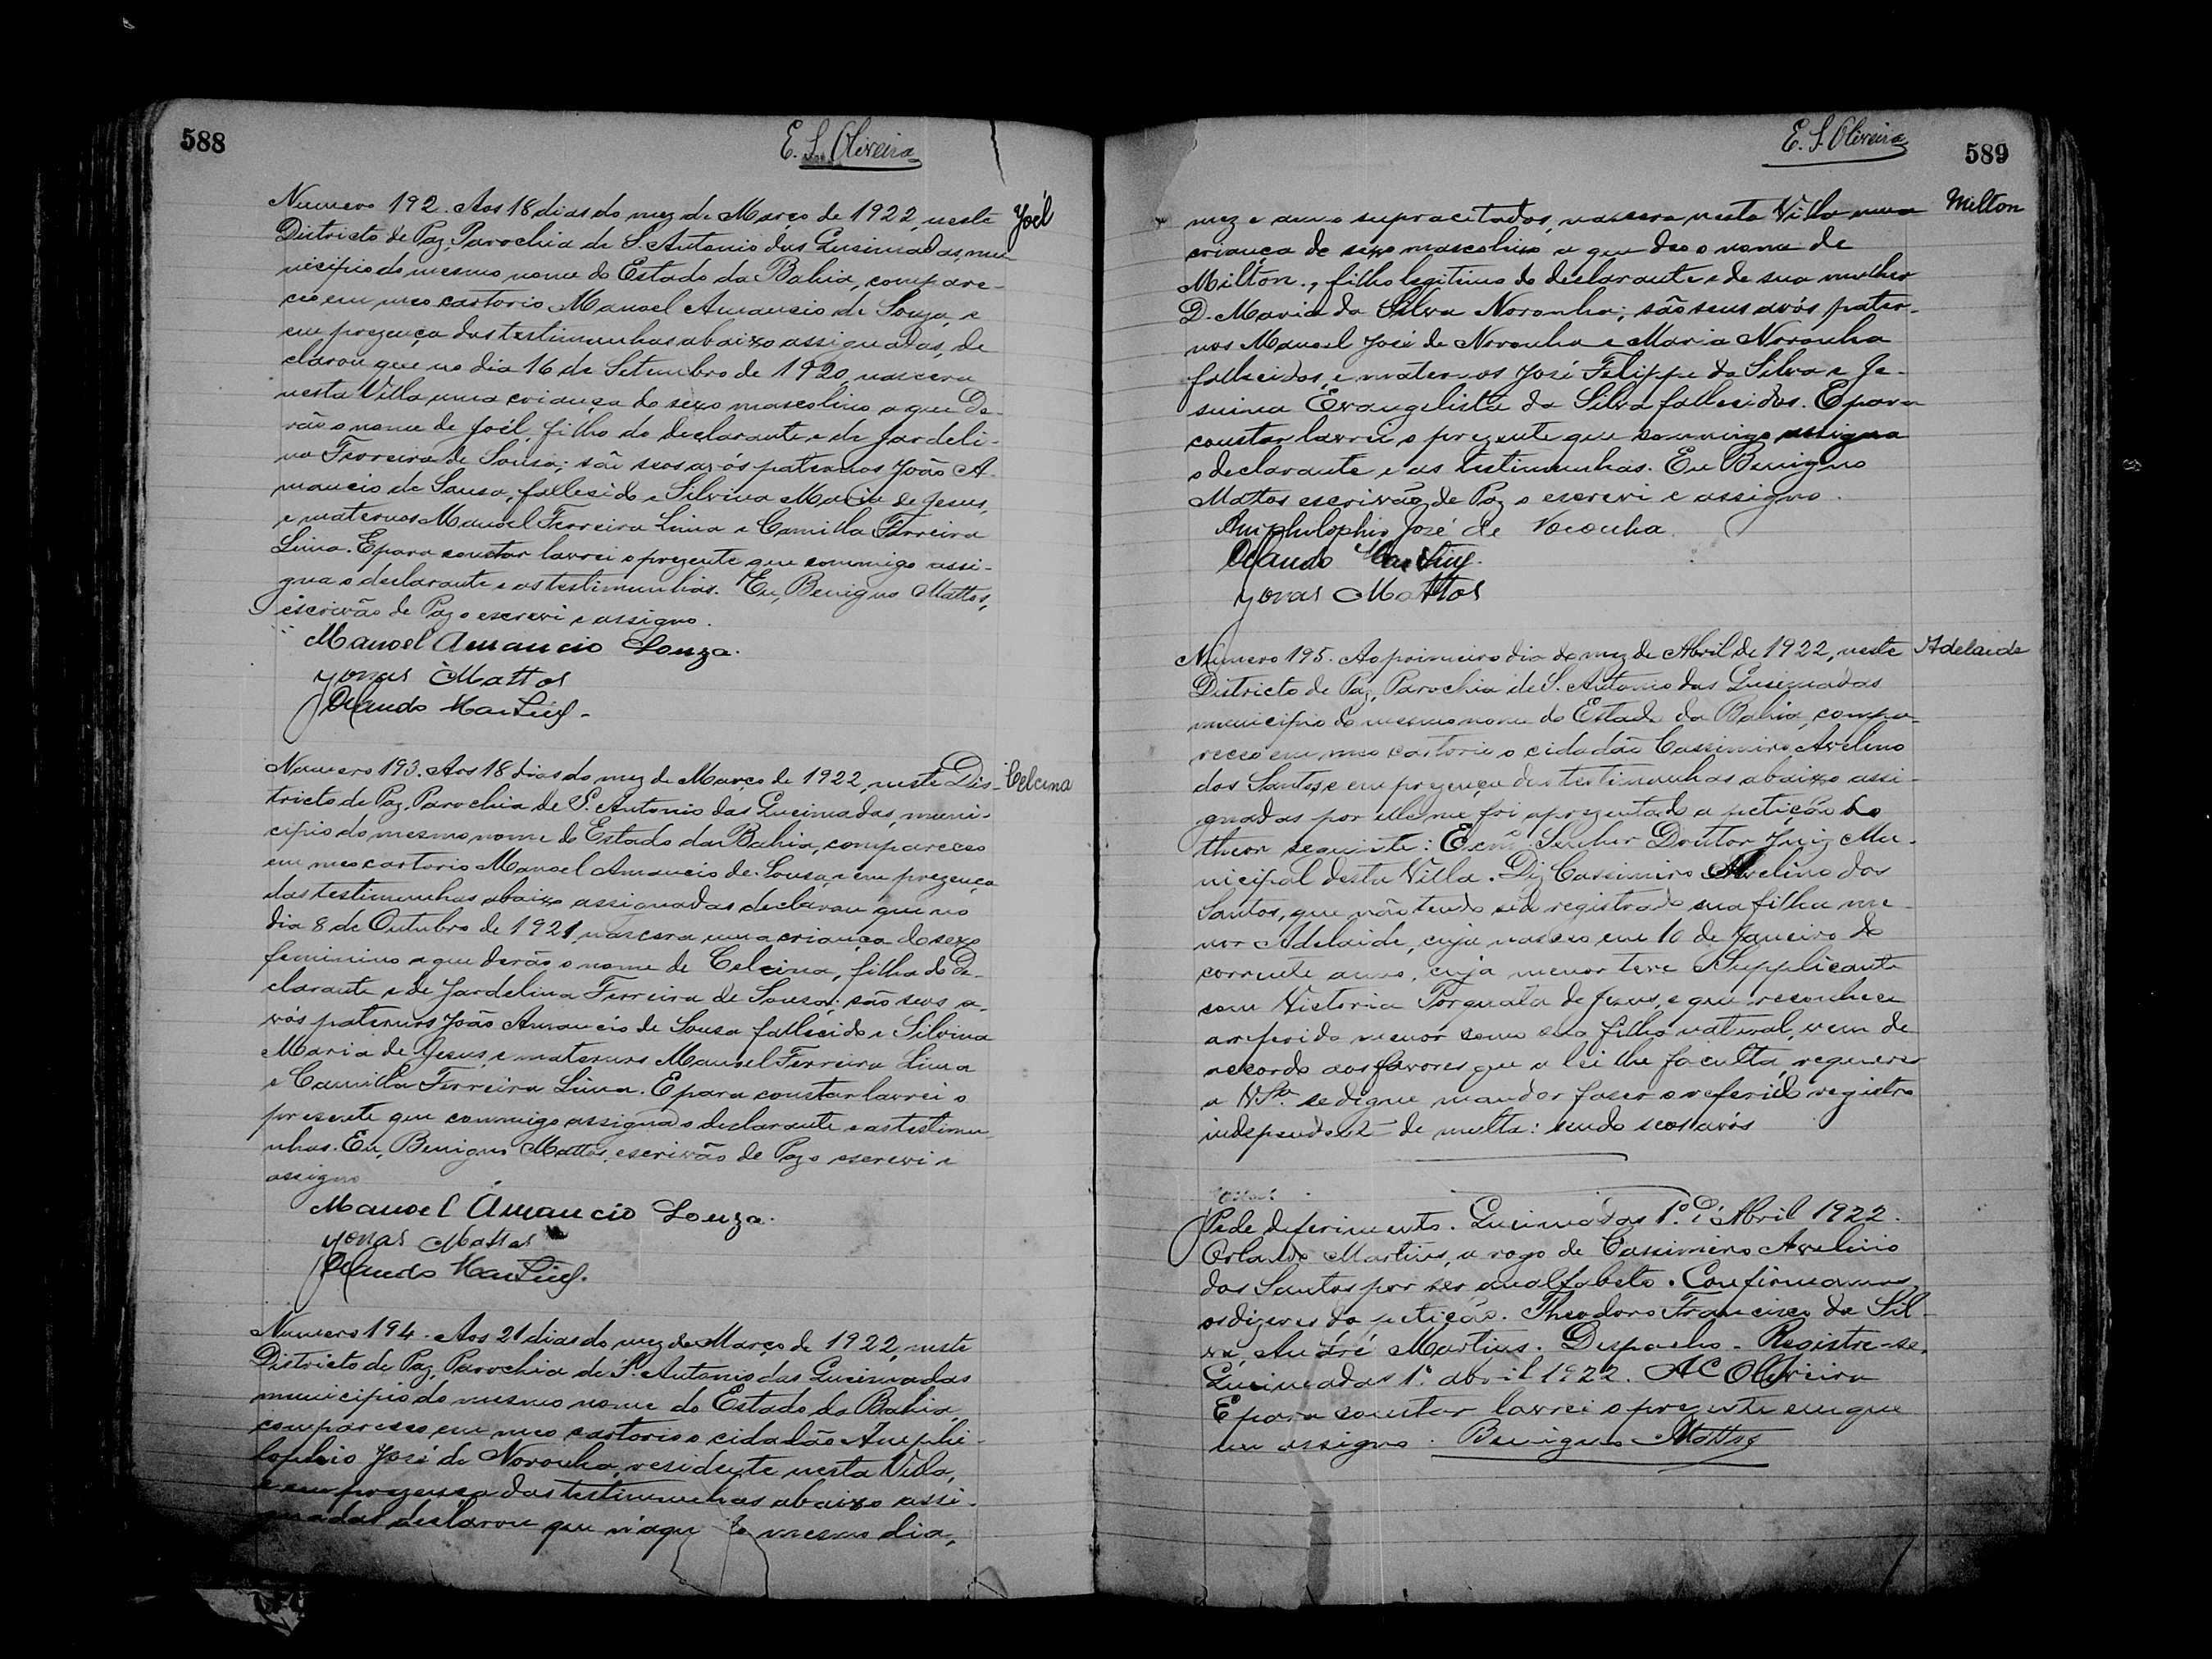 588
E. S. Oliveira
Numero 192. Aos 18 dias do mez de Março de 1922, neste
Joél
Districto de Paz, Parochia de S. Antonio das Queimadas, mu-
nicipio do mesmo nome do Estado da Bahia, compare-
ceo em meo cartorio Manoel Amancio de Souza, e
em prezença das testimunhas abaixo assignadas, de
clarou que no dia 16 de Setembro de 1920, nascera
nesta Villa uma criança do sexo mascolino a que de-
rão o nome de Joél, filho do declarante e de Jardeli-
na Ferreira de Sousa; são seos avós paternos João A-
mancio de Sousa, fallesido e Silvina Maria de Jesus,
e maternos Manoel Ferreira Lima e Camilla Ferreira
Lima. E para constar lavrei o prezente que commigo assi-
gna o declarante e as testimunhas. Eu, Benigno Mattos,
escrivão de Paz o escrevi e assigno.
Manoel Amancio Souza.
Jonas Mattos
Orlando Martins.
Numero 193. Aos 18 dias do mez de Março de 1922, neste Dis-
Celcina
tricto de Paz, Parochia de S. Antonio das Queimadas, muni-
cipio do mesmo nome do Estado da Bahia, compareceo
em meo cartorio Manoel Amancio de Sousa, e em prezença
das testimunhas abaixo assignadas declarou que no
dia 8 de Outubro de 1921 nascera uma criança do sexo
feminino a que derão o nome de Celcina, filha do De-
clarante e de Jardelina Ferreira de Sousa; são seos a-
vós paternos João Amancio de Sousa fallecido e Silvina
Maria de Jesus, e maternos Manoel Ferreira Lima
e Camilla Ferreira Lima. E para constar lavrei o
presente que commigo assigna o declarante e as testimu-
nhas. Eu, Benigno Mattos, escrivão de Paz o escrevi e
assigno
Manoel Amancio Souza.
Jonas Mattos
Orlando Martins.
Numero 194. Aos 21 dias do mez de Março de 1922, neste
Districto de Paz, Parochia de S. Antonio das Queimadas
municipio do mesmo nome do Estado da Bahia,
compareceo em meo cartorio o cidadão Amphi-
lophio José de Noronha, residente nesta Villa,
e em prezença das testimunhas abaixo assi-
gnadas declarou que n'aque mesmo dia,
589
E. S. Oliveira
mez e anno supracitados, nascera nesta Villa uma
Milton
criança de sexo mascolino a que deo o nome de
Milton., filho legitimo do declarante e de sua mulher
D. Maria da Silva Noronha; são seus avós pater-
nos Manoel José de Noronha e Maria Noronha
fallecidos, e maternos José Felippe da Silva e Je-
suina Evangelista da Silva fallesidos. E para
constar lavrei o prezente que commigo assigna
o declarante e as testimunhas. Eu Benigno
Mattos escrivão de Paz o escrevi e assigno.
Amphilophio José de Noronha.
Orlando Martins.
Jonas Mattos
Numero 195. Ao primeiro dia do mez de Abril de 1922, neste
Adelaide
Districto de Paz, Parochia de S. Antonio das Queimadas
municipio do mesmo nome do Estado da Bahia, compa-
receo em meo cartorio o cidadão Cassimiro Avelino
dos Santos, e em prezença das testimunhas abaixo assi-
gnadas por elle me foi aprezentado a petição do
theor seguinte: Exmº Senhor Doutor Juiz Mu-
nicipal desta Villa. Diz Cassimiro Avelino dos
Santos, que não tendo sido registrado sua filha me-
nor Adelaide, cuja nasceo em 10 de Janeiro do
corrente anno, cuja menor teve o Supplicante
com Victoria Torquata de Jesus, e que reconhece
a referida menor como sua filha natural, vem de
acordo aos favores que a lei lhe faculta, requerer
a V. Sª. se digne mandar faser o referido registro
independente de multa: sendo seos avós
Pede deferimento. Queimadas 1º de Abril 1922.
Orlando Martins, a rogo de Cassimiro Avelino
dos Santos por ser analfabeto. Confirmamos
os dizeres da petição. Theodoro Francisco da Sil-
va, André Martins. Despacho. Registre-se.
Queimadas 1º abril 1922. A C Oliveira
E para constar lavrei o prezente em que
me assigno. Benigno Mattos